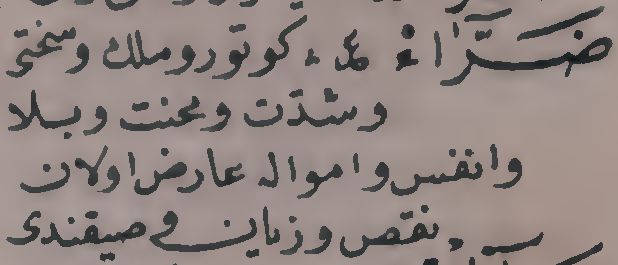 ضَرَّاءْ ع كوتوروملك وسختى
وشدّت ومحنت وبلا
وانفس وامواله عارض اولان
نقص وزيان و صيقندى